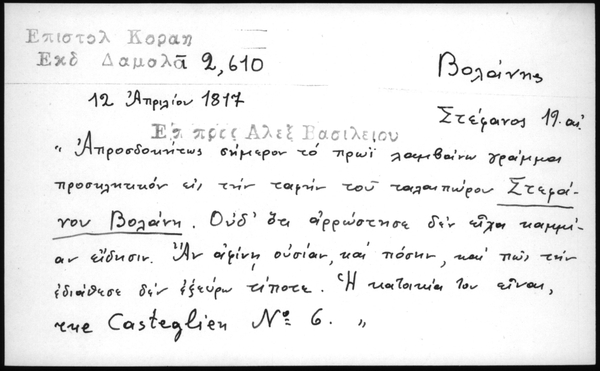 Επιστολ Κοραη
Εκδ Δαμαλᾶ 2,610
Βολάνης
12 Ἀπριλίου 1817
Στέφανος 19. αἰ.
Επ πρςς Αλεξ Βασιλειου
" Ἀπροσδοκήτως σήμερον τό πρωΐ λαμβάνω γράμμα
προσκλητικόν εἰς τήν ταφήν τοῦ ταλαιπώρου Στεφά-
νου Βολάνη. Οὐδ' ὅτι ἀρρώστησε δέν εἶχα καμμί-
αν εἴδησιν. Ἄν ἀφίνῃ οὐσίαν, καί πόσην, καί πῶς τήν
ἐδιάθεσε δέν ἐξεύρω τίποτε. Ἡ κατοικία του εἶναι,
rue Casteglien Nº 6. "